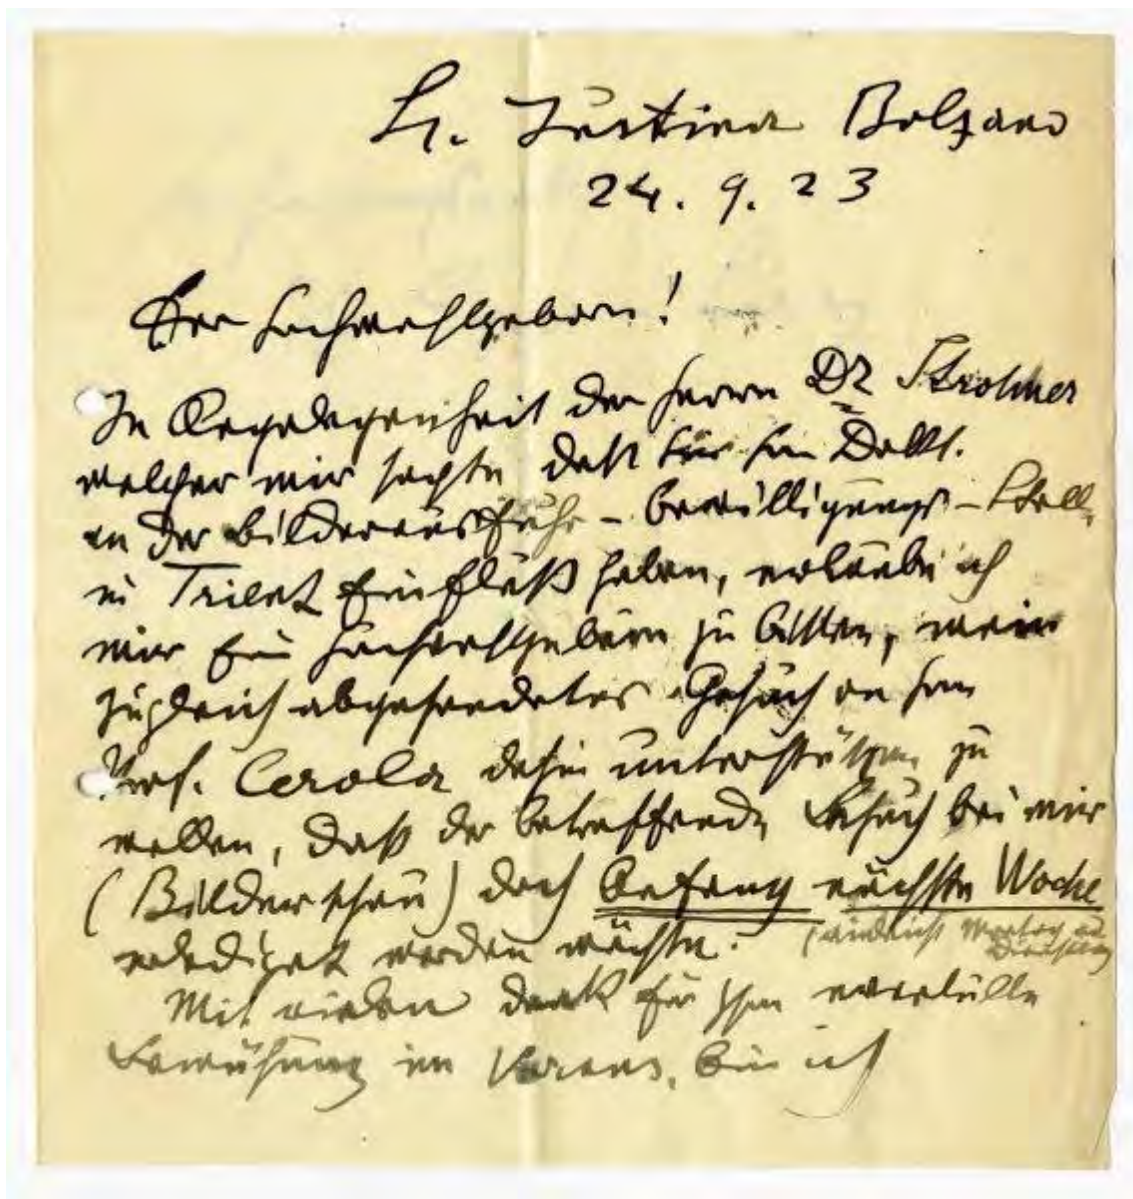 St. Justina Bolzano
24. 9. 23
Euer Hochwohlgeboren!
In Angelegenheit des Herrn Dr Strohmer
welcher mir sagte daß
an der Bilderausfuhr - bewilligungs - Stelle
in Trient Einfluß haben, erlaube ich
mir Euer Hochwohlgeboren zu bitten, mein
zugleich abgesendetes Gesuch an Herrn
Prof. Cerola dahin unterstützen zu
wollen, daß der betreffende Besuch bei mir
(Bilderschau) doch Anfang nächster Woche
erledigt werden möchte. ( Montag
Dienstag
Mit vielem Dank für Ihre
Bemühung im Voraus, bin ich